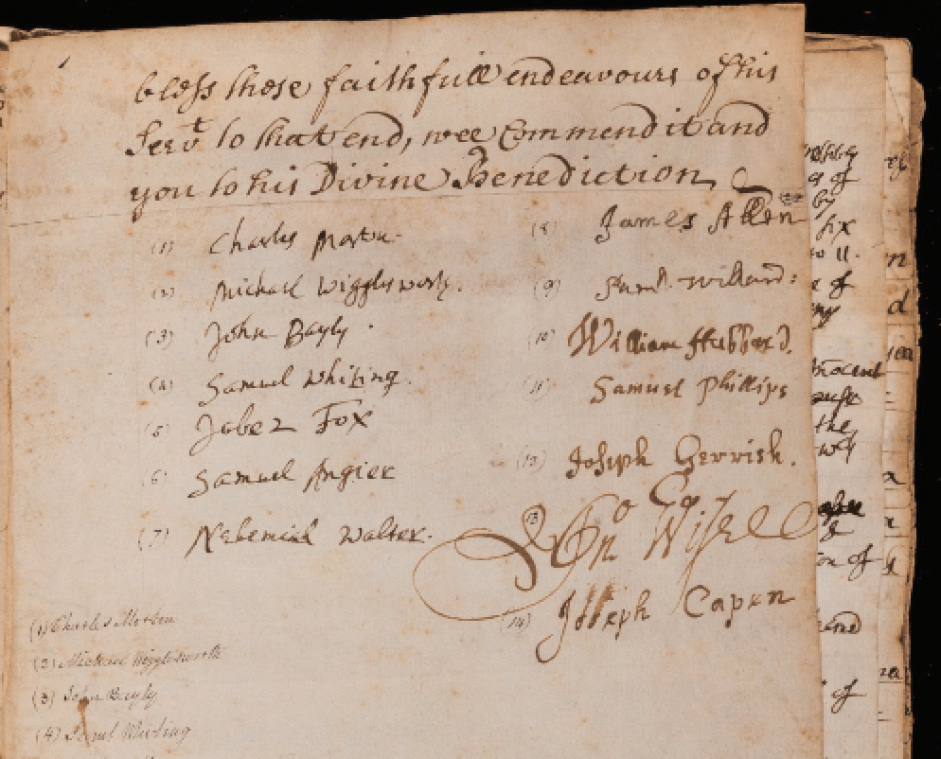 bless those faithfull endeavours of his
Servt to that end, wee Commend it and
you to his Divine Benediction
(1) Charles Morton.
(2) Michael Wigglesworth.
(3) John Bayly.
(4) Samuel Whiting.
(5) Jabez Fox
(6) Samuel Angier
(7) Nehemiah Walter.
(8) James Allen
(9) Saml. Willard:
(10) William Hubbard.
(11) Samuel Phillips
(12) Joseph Gerrish.
(13) Jno Wise
(14) Joseph Capen
(1) Charles Morton
(2) Michael Wigglesworth
(3) John Bayly
(4) Saml Whiting
of
by
six
to 11.
of
the
of
of
n
d
a